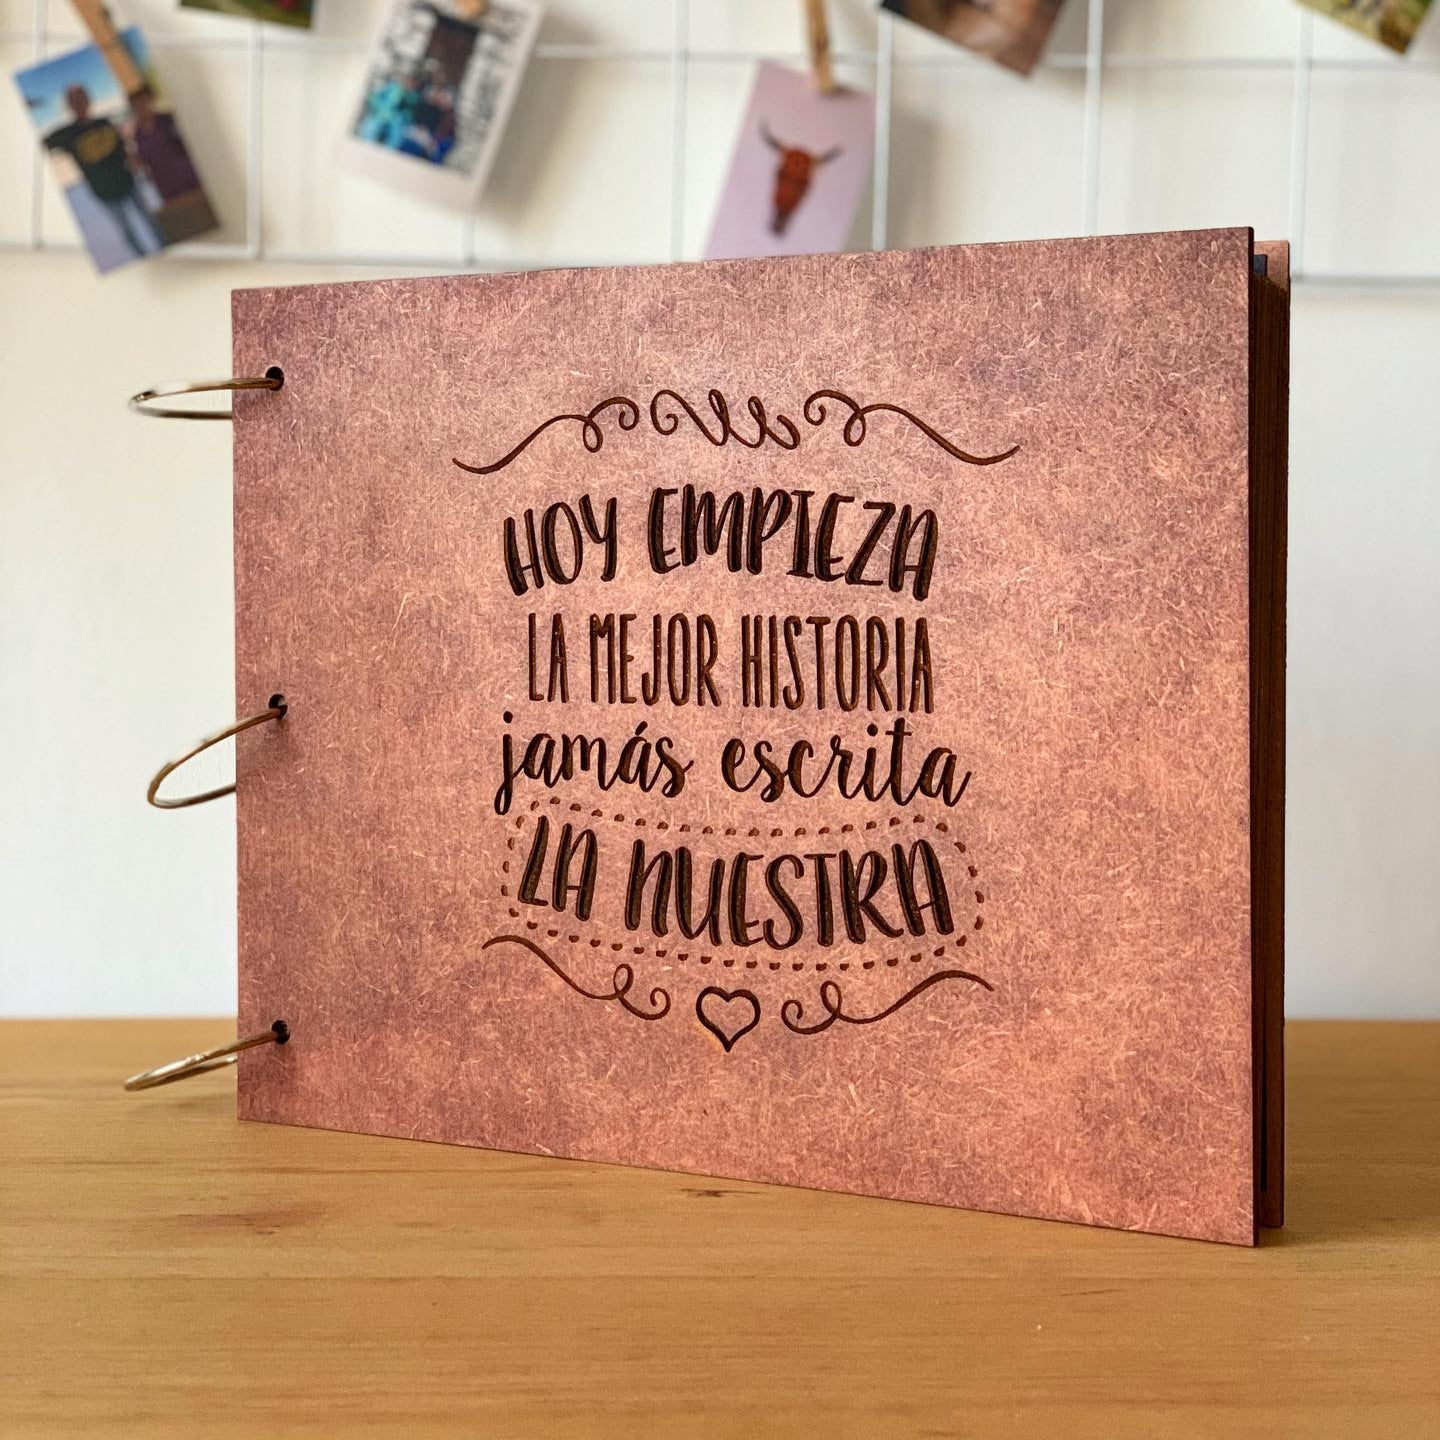 HOY EMPIEZA
LA MEJOR HISTORIA
jamás escrita
LA NUESTRA